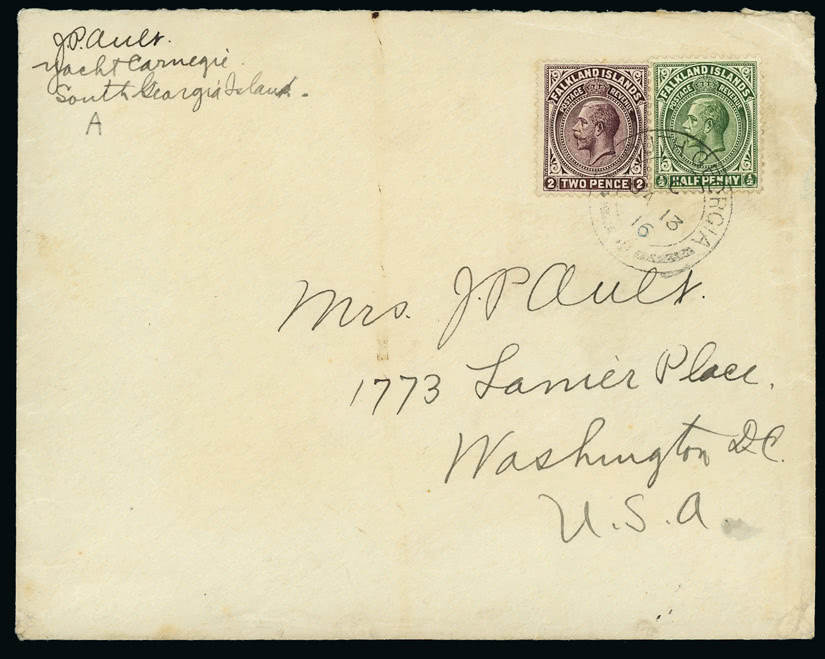 J.P. Ault.
Yacht Carnegie.
South Georgia Island.
A
FALKLAND ISLANDS
POSTAGE REVENUE
2 TWO PENCE 2
FALKLAND ISLANDS
POSTAGE REVENUE
½ HALF PENNY ½
GEORGIA
JA 13
16
Mrs. J.P. Ault.
1773 Lanier Place.
Washington D.C.
U.S.A.